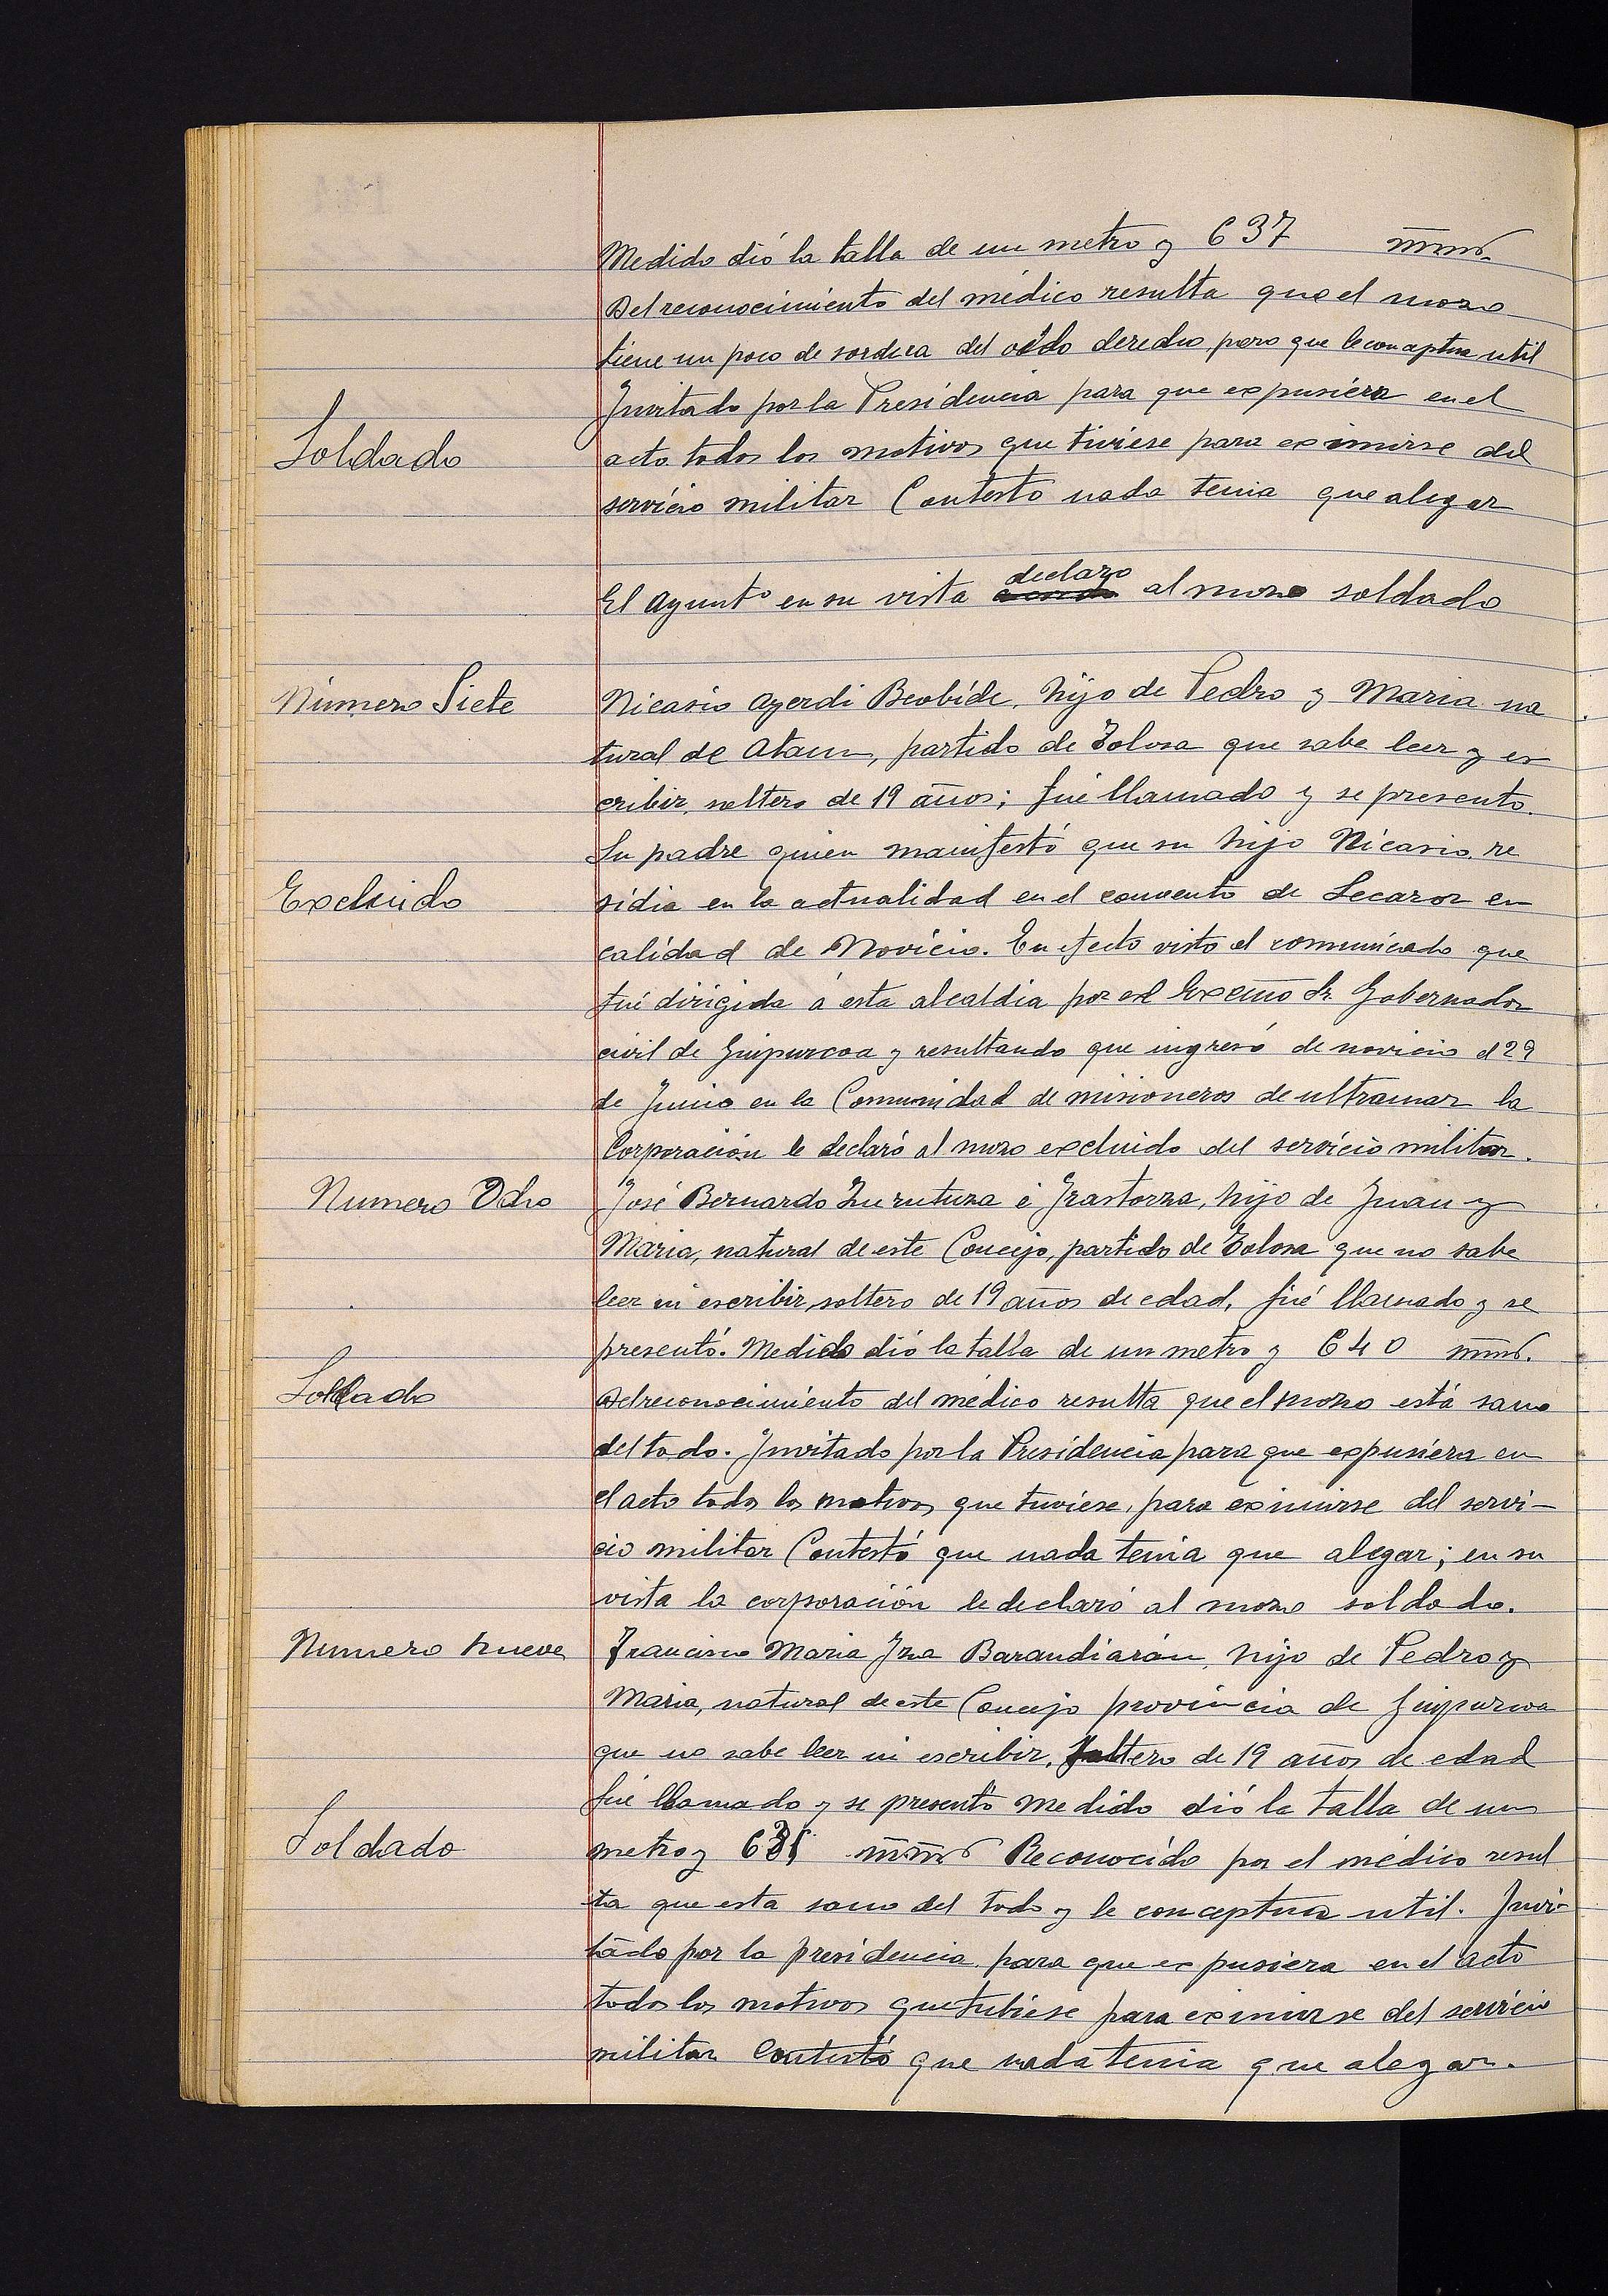 Medido dió la talla de un metro y 637 mms.
Del reconocimiento del médico resulta que el mozo
tiene un poco de sordera del oido derecho, pero que le conceptua util
Invitado por la Presidencia para que expusiera en el
Soldado
acto todos los motivos que tuviese para eximirse del
servicio militar Contesto nada tenia que alegar
declaro
El Ayuntº en su vista al mozo soldado
Número Siete
Nicasio Ayerdi Beobide, hijo de Pedro y Maria na
tural de Ataun, partido de Tolosa que sabe leer y es
cribir, soltero de 19 años; fué llamado y se presento
Su padre quien manifestó que su hijo Nicasio re
Excluido
sidia en la actualidad en el convento de Lecaroz en
calidad de Novicio. En efecto visto el comunicado que
fué dirigida á esta alcaldia por el Excmo Sr. Gobernador
civil de Guipuzcoa y resultando que ingresó de novicio el 29
de Junio en la Comunidad de misioneros de ultramar la
Corporación le declaró al mozo excluido del servicio militar.
Numero Ocho
José Bernardo Zurutuza é Irastorza, hijo de Juan y
Maria, natural de este Concejo, partido de Tolosa que no sabe
leer ni escribir, soltero de 19 años de edad, fué llamado y se
presentó. Medido dió la talla de un metro y 640 mms.
Soldado
Del reconocimiento del médico resulta que el mozo está sano
del todo. Invitado por la Presidencia para que expusiera en
el acto todos los motivos que tuviese, para eximirse del servi-
cio militar Contestó que nada tenia que alegar; en su
vista la corporación le declaró al mozo soldado.
Numero nueve
Francisco Maria Iza Barandiarán, hijo de Pedro y
Maria, natural de este Concejo provincia de Guipuzcoa
que no sabe leer ni escribir, soltero de 19 años de edad
fué llamado y se presentó medido dió la talla de un
Soldado
metro y mms Reconocido por el médico resul
ta que esta sano del todo y le conceptua util. Invi-
tado por la presidencia para que expusiera en el acto
todos los motivos que tubiese para eximirse del servicio
militar Contestó que nada tenia que alegar.